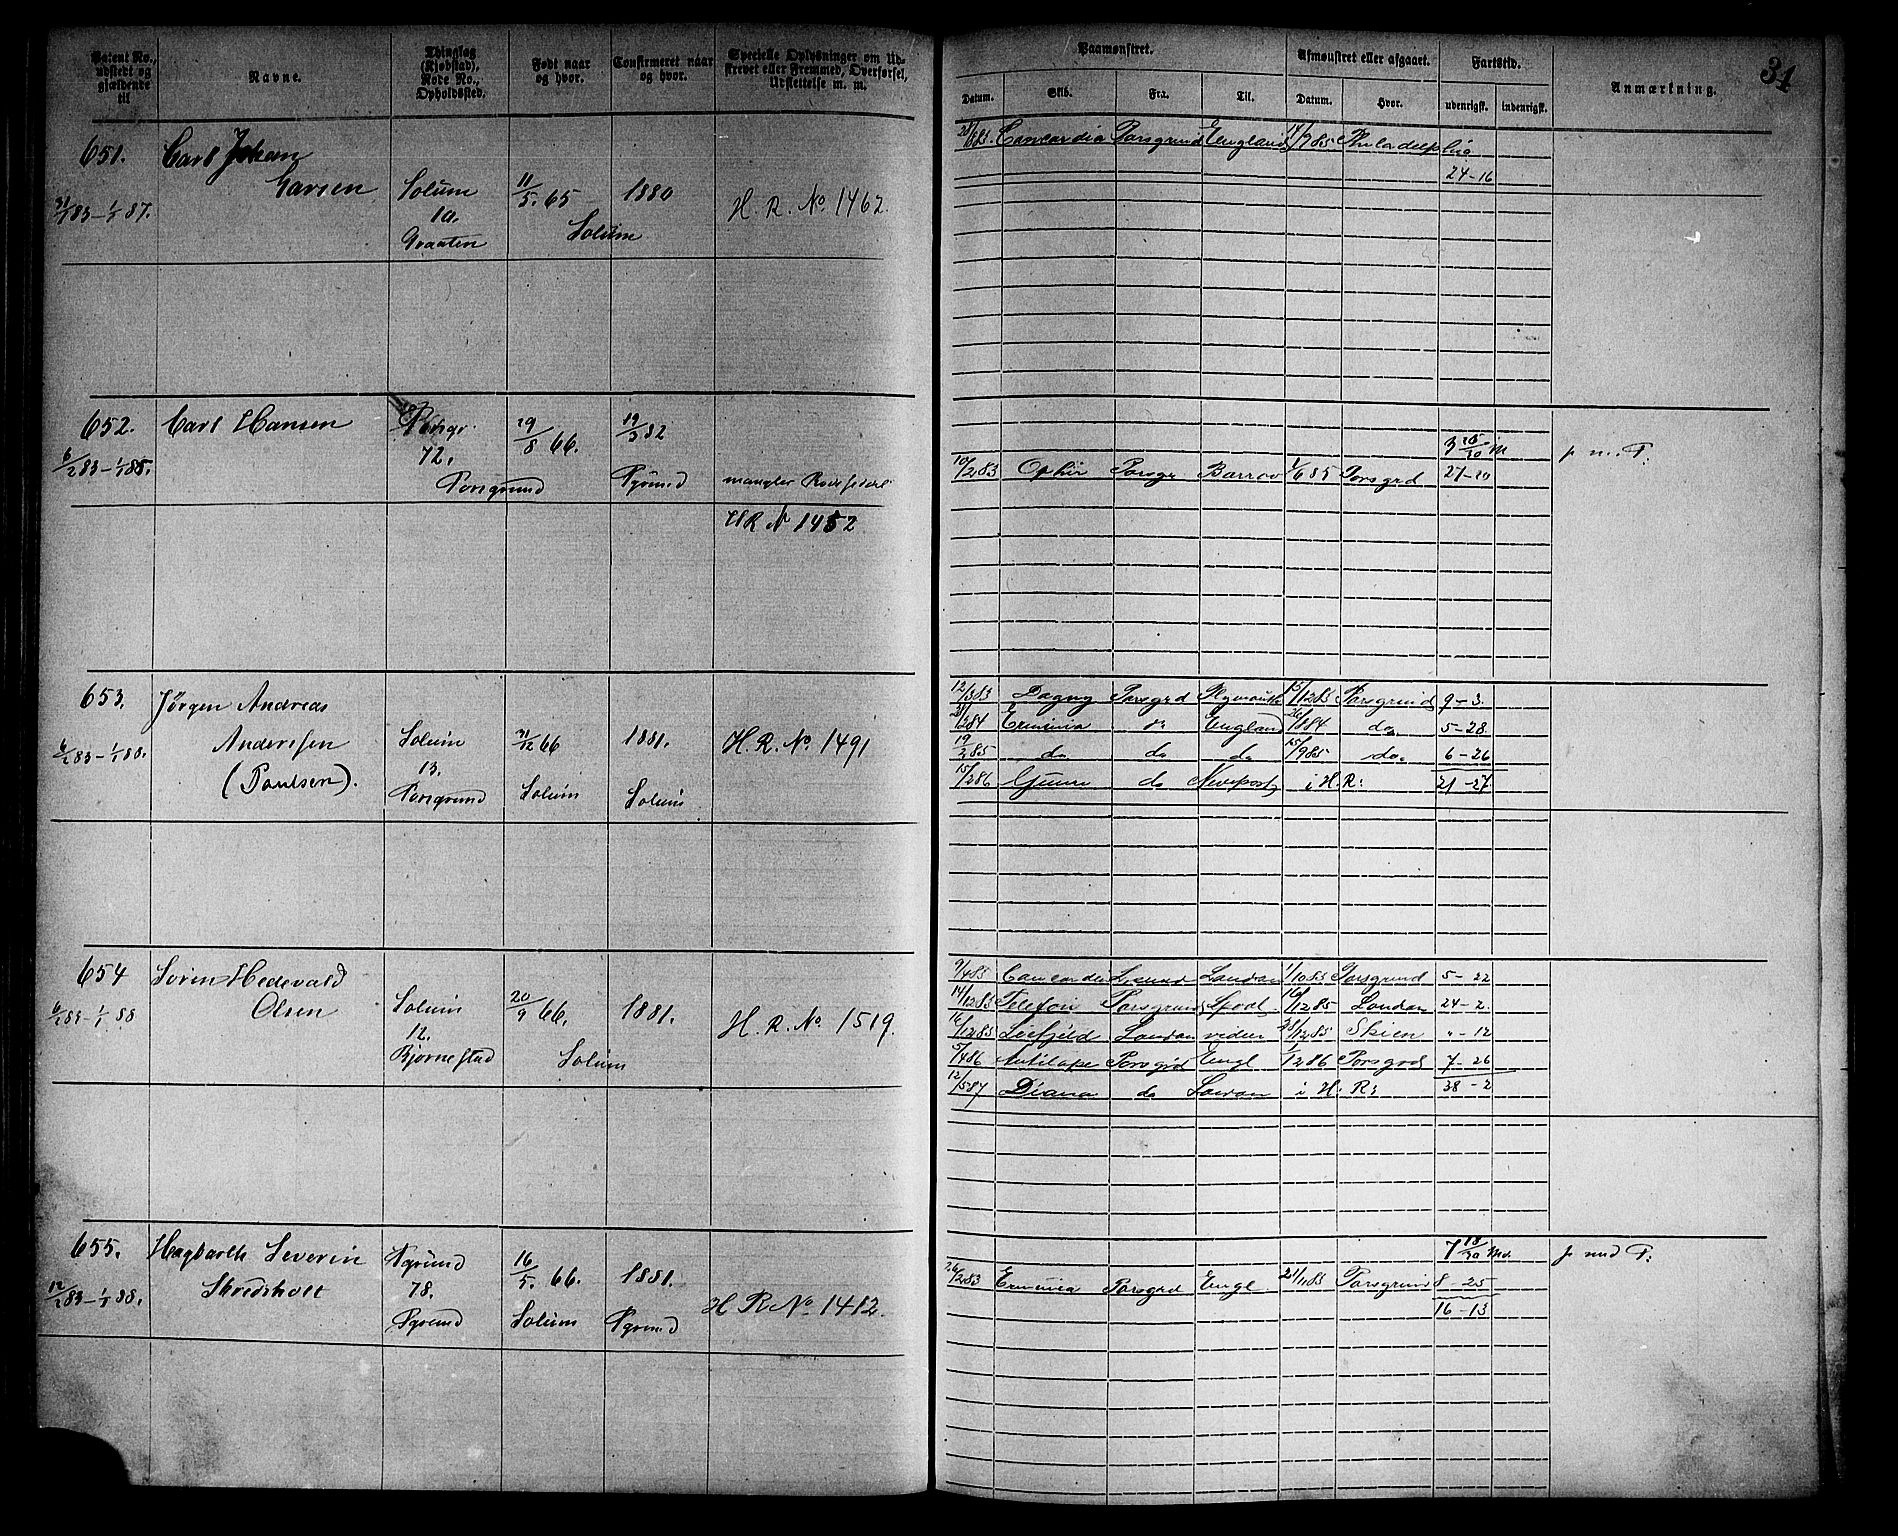 31
Patent No., udstedt og gjældende til
Navne.
Thinglag (Kjøbstad), Rode No., Opholdssted.
Født naar og hvor.
Confirmeret naar og hvor.
Specielle Oplysninger om Udskrevet eller Fremmed, Overførsel, Udslettelse m. m.
Paamønstret.
Afmønstret eller afgaaet.
Fartstid.
Anmærkning.
Datum. Skib. Fra. Til. Datum. Hvor. udenrigsk. indenrigsk.
651. Carl Johan
Larsen Solum 11/5. 65 1880 H. R. No. 1462.
31/1 83-1/1 87. 10.
Graaten Solum
28/6 83. Concordia Porsgrund England 14/7 85 Philadelphia
24-16
652. Carl Hansen Porsgr. 29/8 66. 19/3 82
6/2 83-1/1 88. 72.
Porsgrund Pgrund mangler Rodeseddel
HR N 1452
p m. P.
10/2 83 Ophir Porsgr Barrow 1/6 85 Porsgrd 27-20
653. Jørgen Andreas
Anderssen Solum 31/12 66 1881. H. R. No. 1491
6/2 83-1/1 88. 13.
(Paulsen). Porsgrund Solum Solum
12/3 83 Dagny Porsgrd Plymouth 15/12 83 Porsgrund 9-3.
Erminia do England do. 5-28.
19/2 85 do do do 15/9 85 do. 6-26
15/2 86 Gunn do Newport i H. R: 21-27
654 Søren Hedevald
Olsen Solum 20/9 66. 1881. H. R. No. 1519.
6/2 83-1/1 88 12.
Bjørnestad Solum
9/4 85 Concordia London 1/10 85 Porsgrund 5-22
14/12 83 Telefon Porsgrund 16/12 85 London 24-2.
16/12 85 Liefjeld London videre 28/12 85 Skien "-12
5/4 86 Antilope Porsgrd Engl 1286 Porsgrd 7-26
38-2
12/5 87 Diana do London i H: R:
655. Hagbarth Severin Pgrund 16/5. 66. 1881.
Skredsholt 78.
12/2 83-1/1 88. Pgrund Solum Pgrund H R No 1412.
7 18/30 Md. p med P.
26/2 83 Erminia Porsgrd Engl. Porsgrund 8-25
16-13